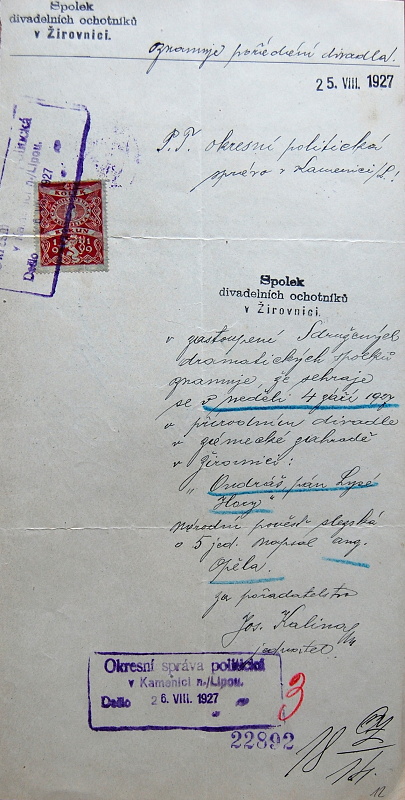 Spolek
divadelních ochotníků
v Žirovnici.
oznamuje pořádání divadla.
25. VIII. 1927
P. T. okresní politická
správo v Kamenici/L!
Spolek
divadelních ochotníků
v Žirovnici.
v zastoupení Sdružených
dramatických spolků
oznamuje, že sehraje
se v neděli 4 září 1927
v přírodním divadle
v zámecké zahradě
v Žirovnici:
"Ondráš pán Lysé
Hory"
národní pověst slezská
o 5 jed. napsal aug.
Opěla.
za pořadatelstvo
Jos. Kalina
jednatel.
Okresní správa politická
v Kamenici n./Lipou.
Došlo 26. VIII. 1927
3
22892
12